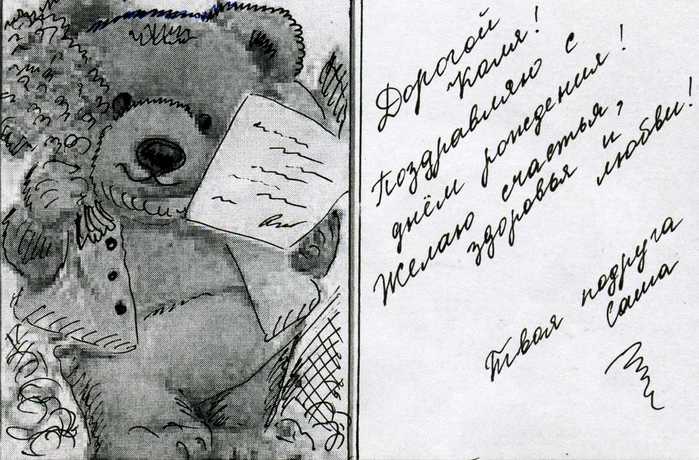 Дорогой
Коля!
Поздравляю с
днём рождения!
Желаю счастья,
здоровья и
любви!
Твоя подруга
Саша